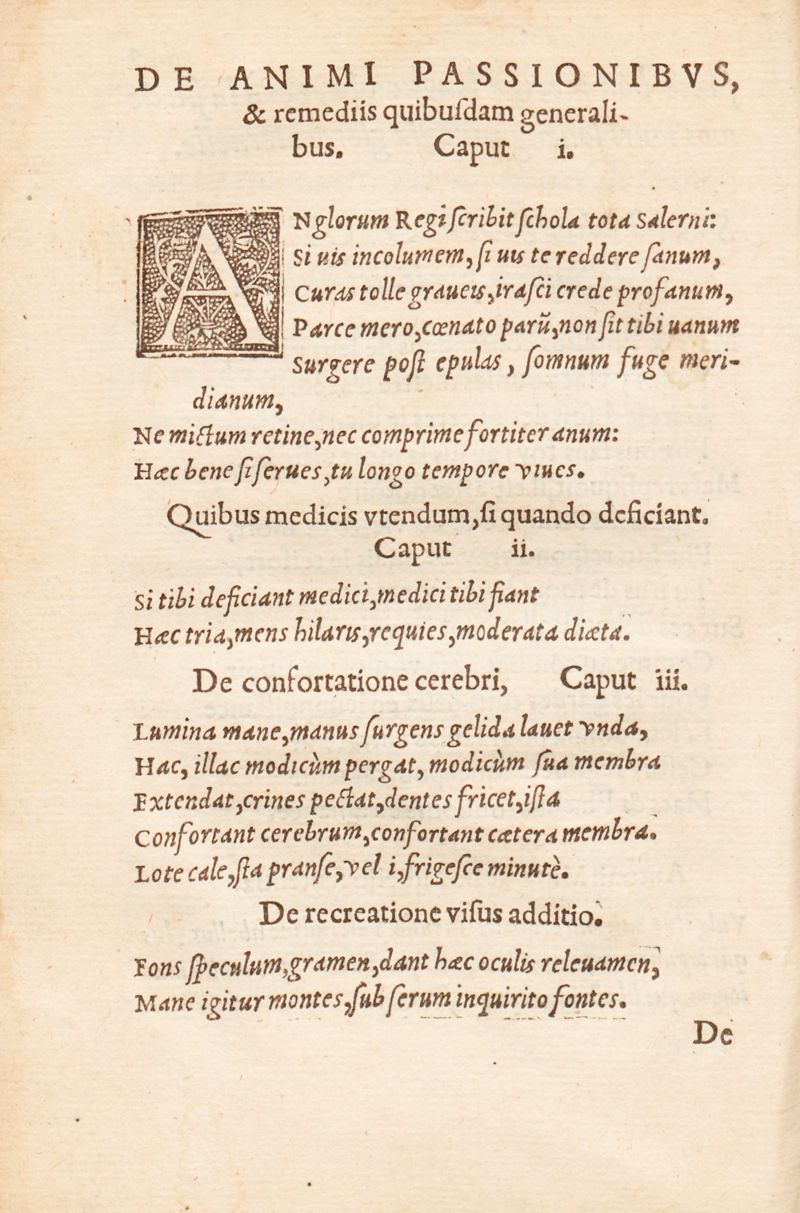 DE ANIMI PASSIONIBVS,
& remediis quibuſdam generali-
bus. Caput i.
ANglorum Regi ſcribit ſchola tota Salerni:
Si uis incolumem, ſi uis te reddere ſanum,
Curas tolle graueis, iraſci crede profanum,
Parce mero, cœnato parũ, non ſit tibi uanum
Surgere poſt epulas, ſomnum fuge meri-
dianum,
Ne mictum retine, nec comprime fortiter anum:
Hæc bene ſi ſerues, tu longo tempore viues.
Quibus medicis vtendum, ſi quando deficiant.
Caput ii.
Si tibi deficiant medici, medici tibi fiant
Hæc tria, mens hilaris, requies, moderata diæta.
De confortatione cerebri, Caput iii.
Lumina mane, manus ſurgens gelida lauet vnda,
Hac, illac modicùm pergat, modicùm ſua membra
Extendat, crines pectat, dentes fricet, iſta
Confortant cerebrum, confortant cætera membra.
Lote cale, ſta pranſe, vel i, frigeſce minutè.
De recreatione viſus additio.
Fons ſpeculum, gramen, dant hæc oculis releuamen,
Mane igitur montes, ſub ſerum inquirito fontes.
De